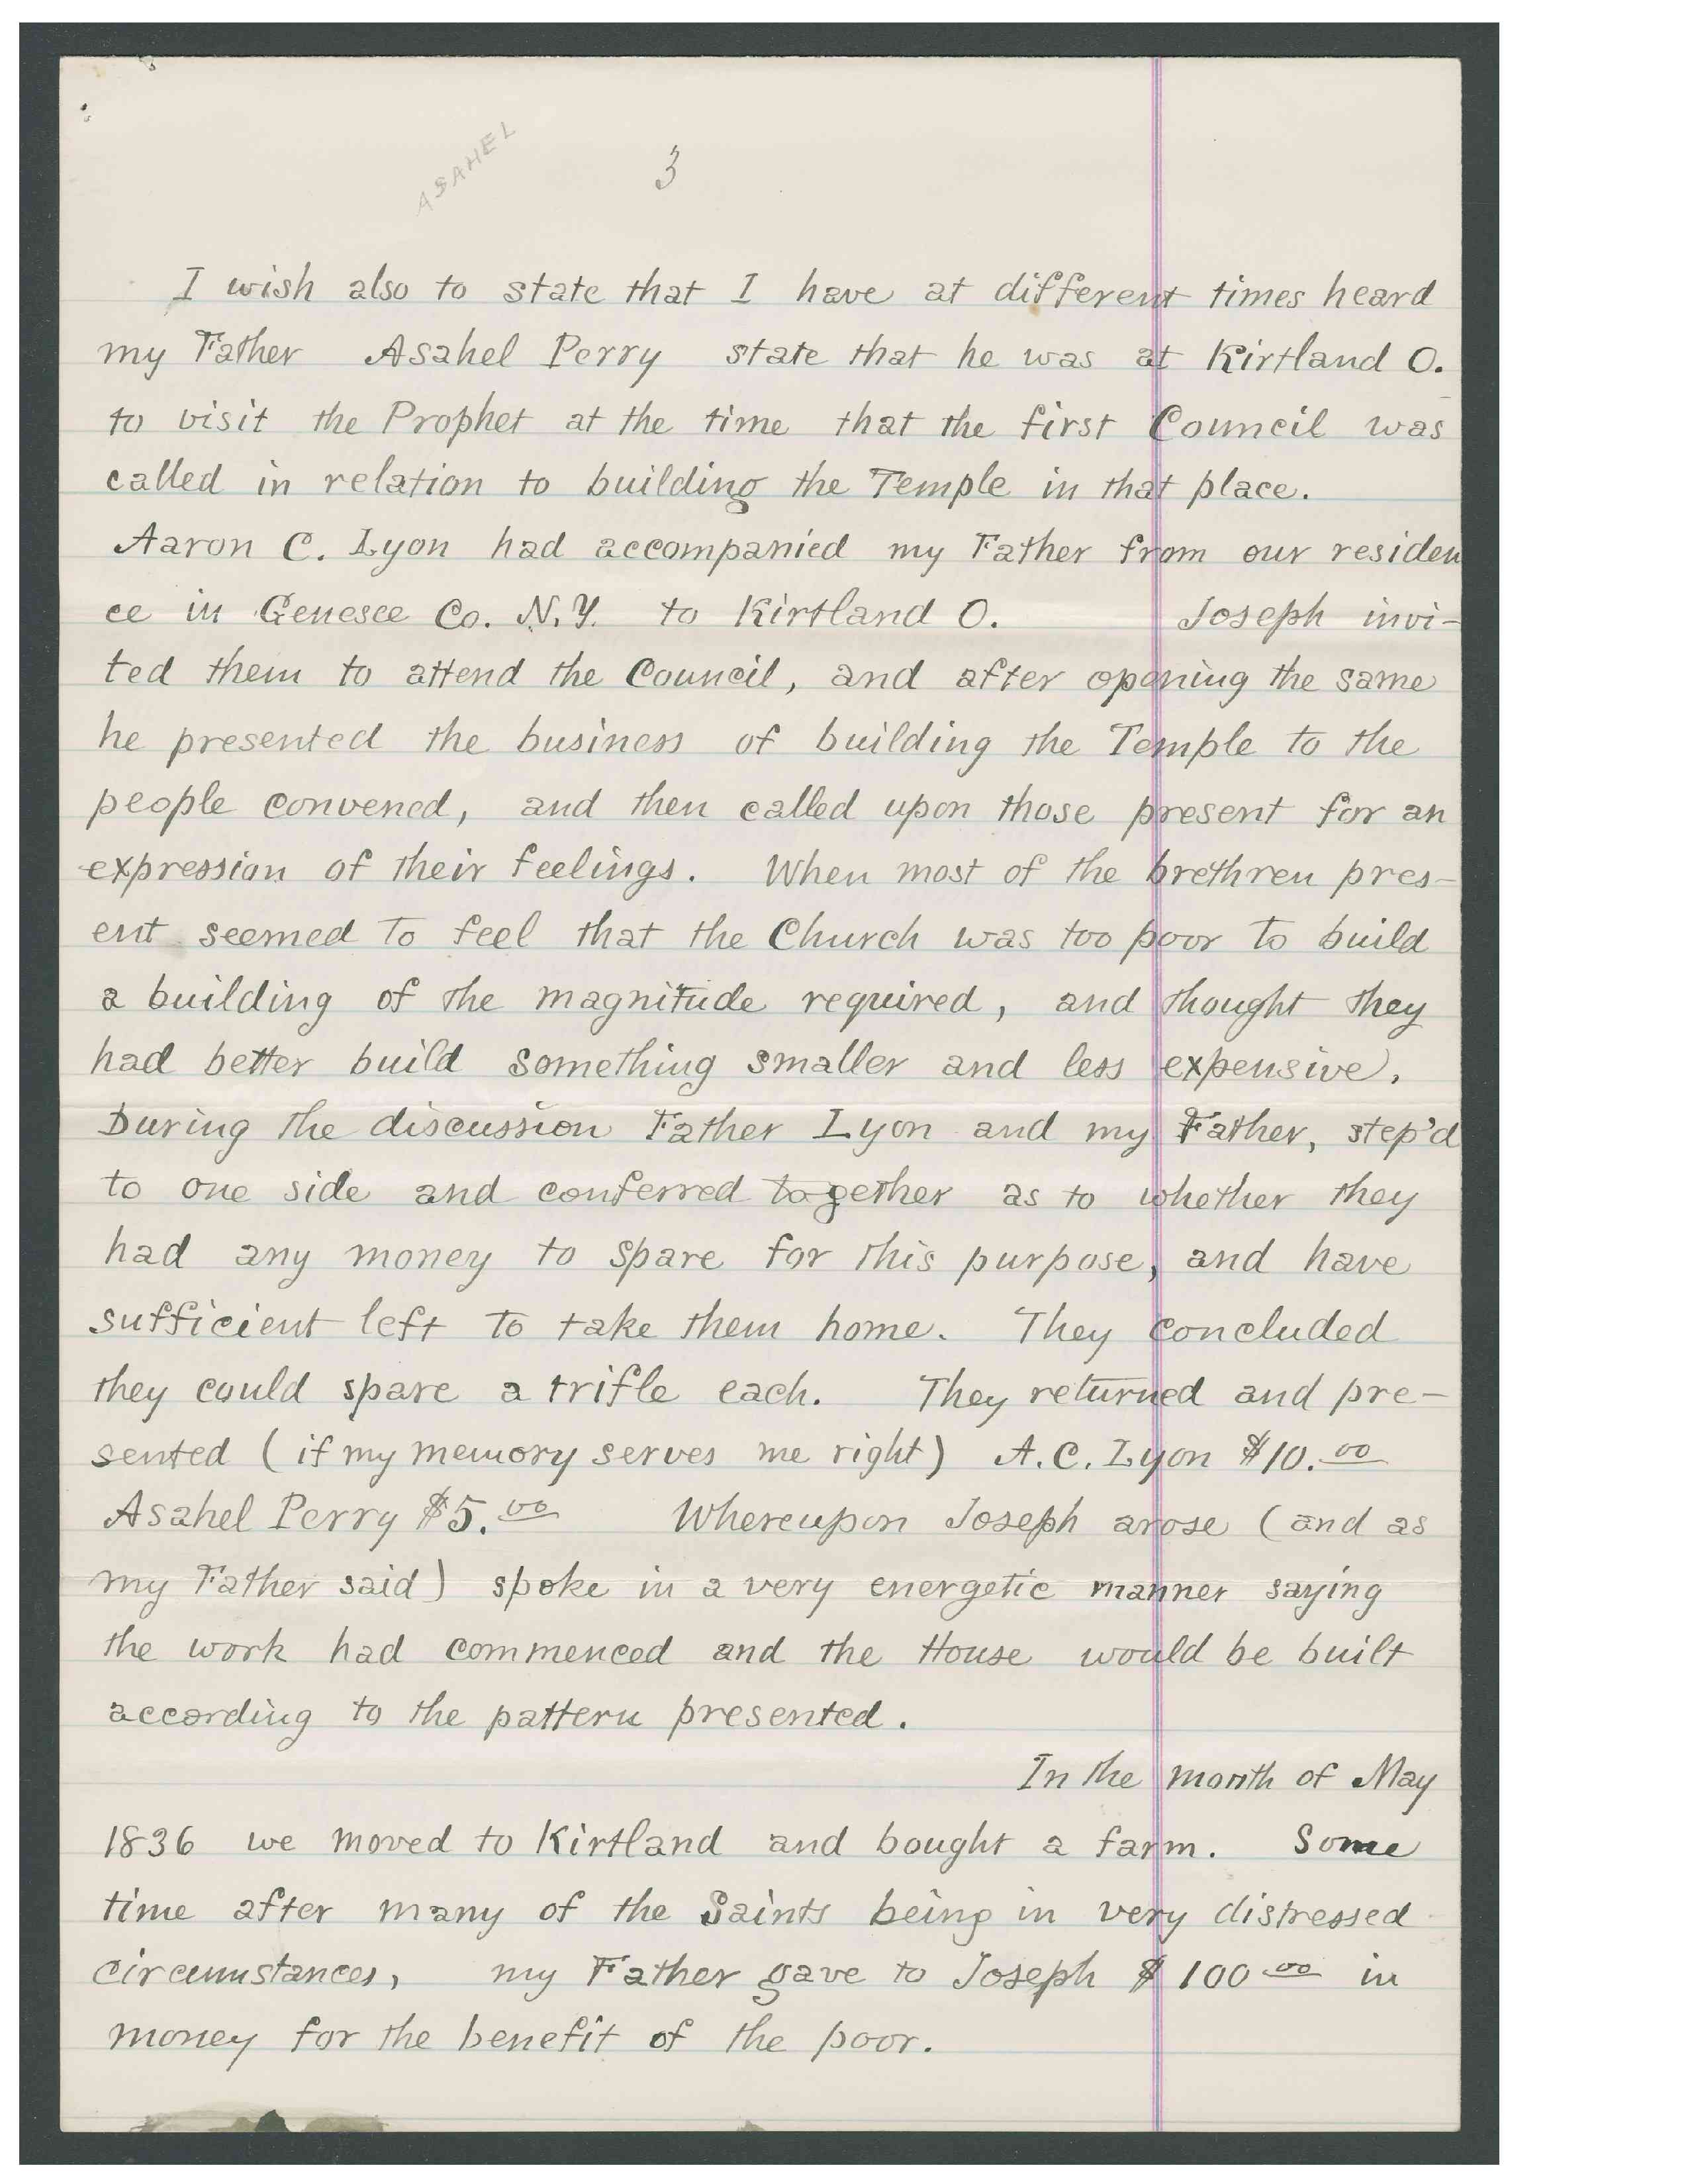 ASAHEL
3
I wish also to state that I have at different times heard
my Father Asahel Perry state that he was at Kirtland O.
to visit the Prophet at the time that the first Council was
called in relation to building the Temple in that place.
Aaron C. Lyon had accompanied my Father from our residen
ce in Genesee Co. N.Y. to Kirtland O. Joseph invi-
ted them to attend the Council, and after opening the same
he presented the business of building the Temple to the
people convened, and then called upon those present for an
expression of their feelings. When most of the brethren pres-
ent seemed to feel that the Church was too poor to build
a building of the magnitude required, and thought they
had better build something smaller and less expensive.
During the discussion Father Lyon and my Father, step'd
to one side and conferred together as to whether they
had any money to spare for this purpose, and have
sufficient left to take them home. They concluded
they could spare a trifle each. They returned and pre-
sented (if my memory serves me right) A.C. Lyon $10.00
Asahel Perry $5.00 Whereupon Joseph arose (and as
my Father said) spoke in a very energetic manner saying
the work had commenced and the House would be built
according to the pattern presented.
In the month of May
1836 we moved to Kirtland and bought a farm. Some
time after many of the Saints being in very distressed
circumstances, my Father gave to Joseph $100 00 in
money for the benefit of the poor.